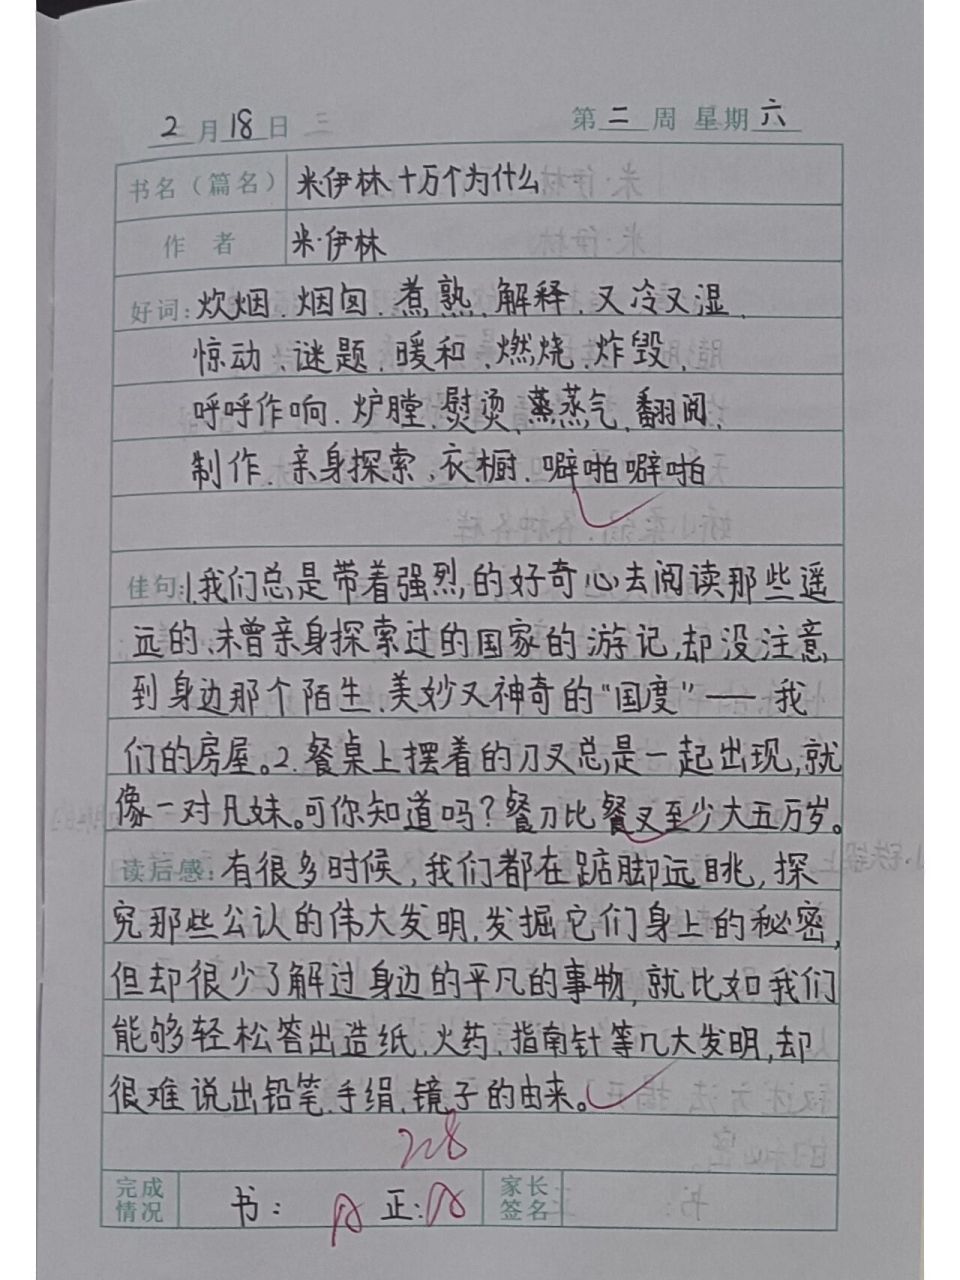 2月18日 第二周 星期六
书名（篇名） 米·伊林、十万个为什么
作者 米·伊林
好词：炊烟、烟囱、煮熟、解释、又冷又湿、
惊动、谜题、暖和、燃烧、炸毁、
呼呼作响、炉膛、熨烫、蒸气、翻阅、
制作、亲身探索、衣橱、噼啪噼啪
佳句：1.我们总是带着强烈的好奇心去阅读那些遥
远的、未曾亲身探索过的国家的游记，却没注意
到身边那个陌生、美妙又神奇的“国度”——我
们的房屋。2.餐桌上摆着的刀叉总是一起出现，就
像一对兄妹。可你知道吗？餐刀比餐叉至少大五万岁。
读后感：有很多时候，我们都在踮脚远眺，探
究那些公认的伟大发明，发掘它们身上的秘密，
但却很少了解过身边的平凡的事物，就比如我们
能够轻松答出造纸、火药、指南针等几大发明，却
很难说出铅笔、手绢、镜子的由来。
2.8
完成情况 书：A 正：A 家长签名